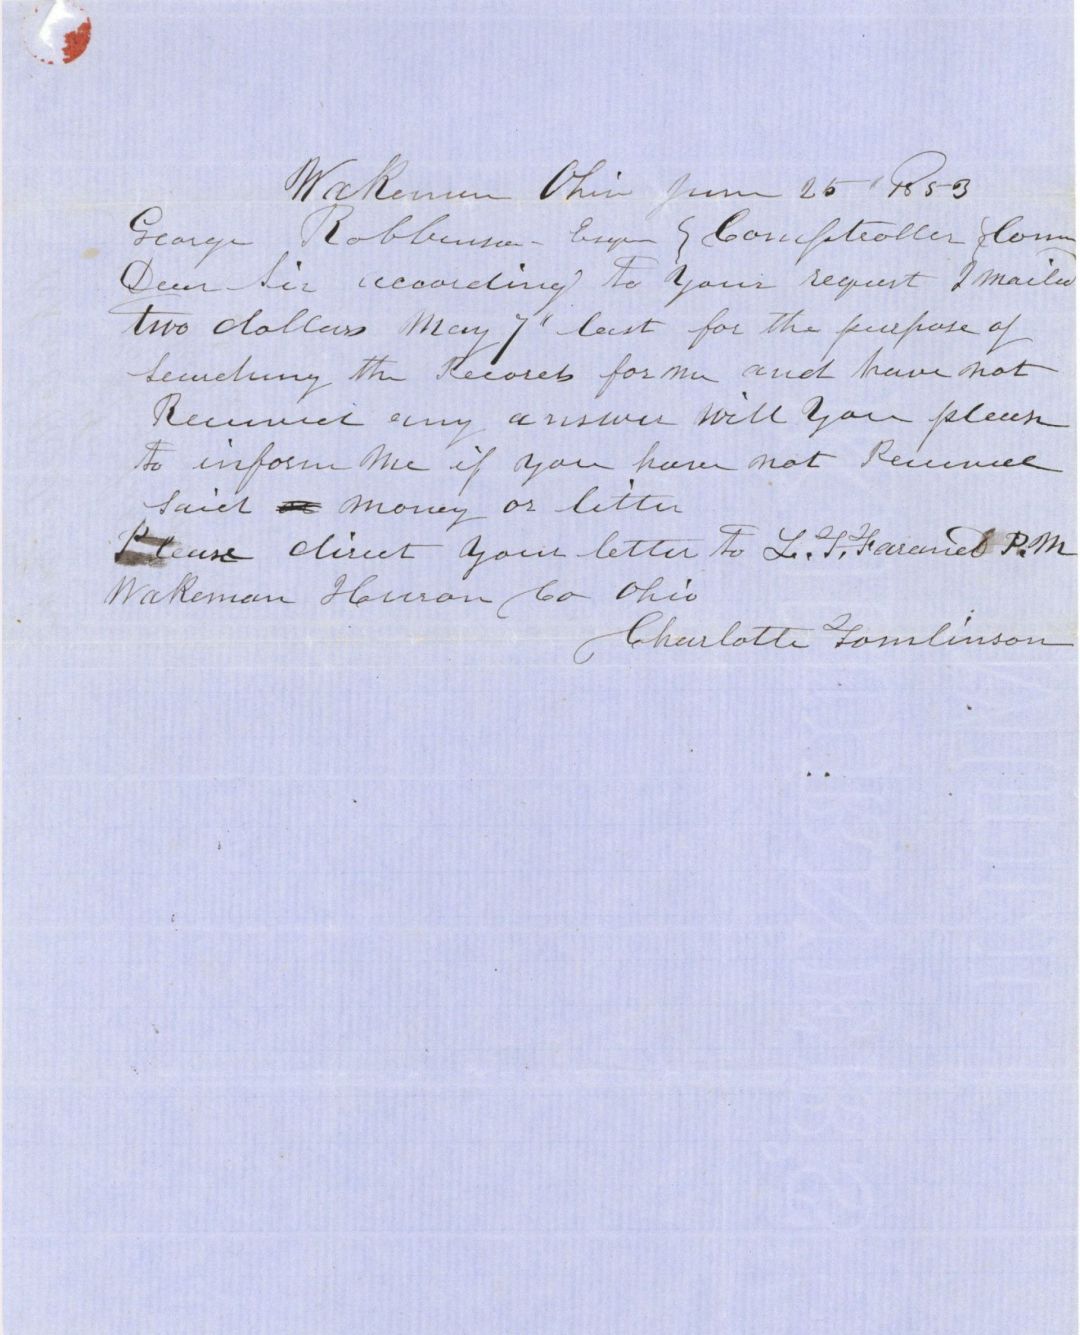 Wakeman Ohio June 25" 1853
George Robbinson Esqr } Comptroller } Conn
Dear Sir according to your request I mailed
two dollars May 7" last for the purpose of
searching the Records for me and have not
Received any answer will you please
to inform me if you have not Received
said money or letter
Please direct your letter to L. T. Farand P.M
Wakeman Huron Co Ohio
Charlotte Tomlinson